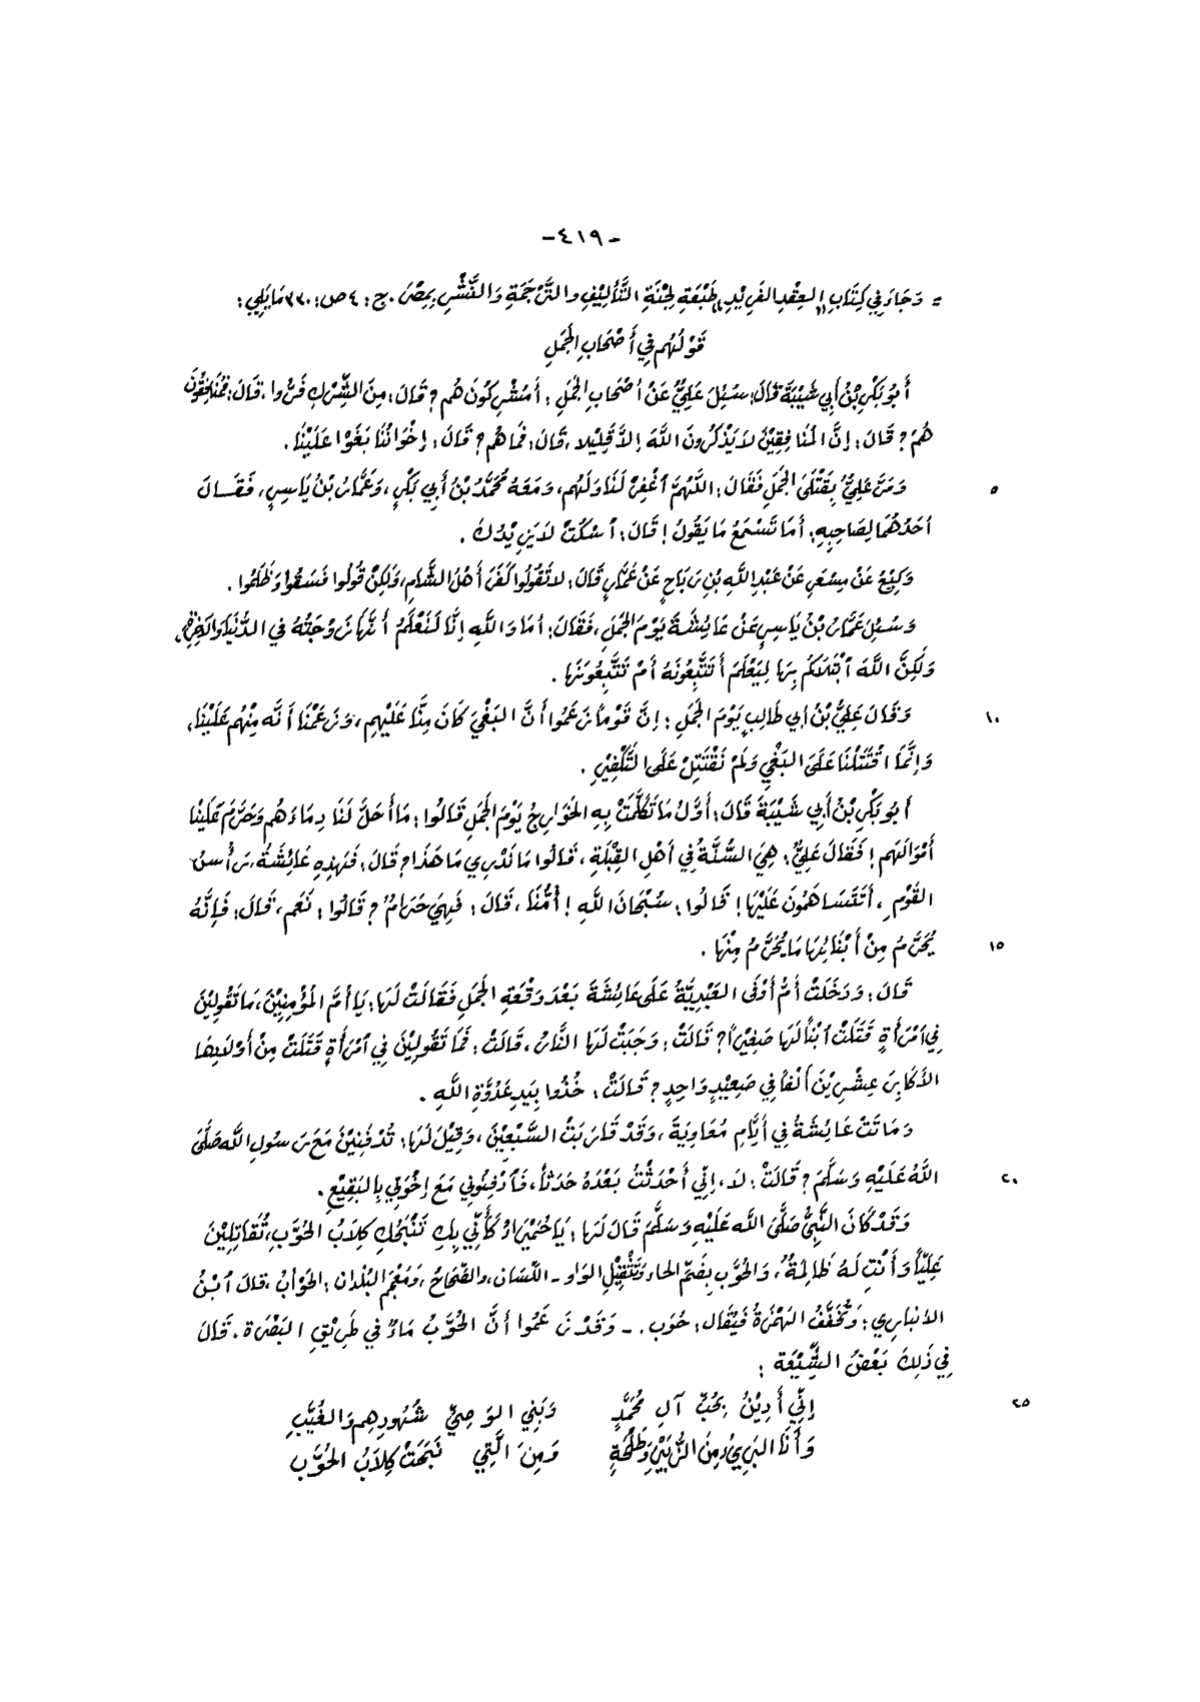 -٤١٩-
= وَجَاءَ فِي كِتَابِ "العِقْدِ الفَرِيْدِ" طَبْعَةِ لَجْنَةِ التَّأْلِيْفِ والتَّرْجَمَةِ وَالنَّشْرِ بِمِصْرَ. ج: ٤ ص: ٣٣٠ مَا يَلِي:
قَوْلُهُم فِي أَصْحَابِ الجَمَلِ
أَبُو بَكْرِ بْنُ أَبِي شَيْبَةَ قَالَ: سُئِلَ عَلِيٌّ عَنْ أَصْحَابِ الجَمَلِ: أَمُشْرِكُونَ هُم؟ قَالَ: مِنَ الشِّرْكِ فَرُّوا، قَالَ: فَمُنَافِقُونَ
هُمْ؟ قَالَ: إِنَّ المُنَافِقِيْنَ لاَيَذْكُرُونَ اللَّهَ إِلاَّ قَلِيْلاً، قَالَ: فَمَا هُم؟ قَالَ: إِخْوَانُنَا بَغَوْا عَلَيْنَا.
وَمَرَّ عَلِيٌّ بِقَتْلَى الجَمَلِ فَقَالَ: اللَّهُمَّ ٱغْفِرْ لَنَا وَلَهُم، وَمَعَهُ مُحَمَّدُ بْنُ أَبِي بَكْرٍ، وَعَمَّارُ بْنُ يَاسِرٍ، فَقَالَ ٥
أَحَدُهُمَا لِصَاحِبِهِ: أَمَا تَسْمَعُ مَا يَقُولُ! قَالَ: ٱسْكُتْ لاَيَزِيْدُكَ.
وَكِيْعٌ عَنْ مِسْعَرٍ عَنْ عَبْدِ اللَّهِ بْنِ رَبَاحٍ عَنْ عَمَّارٍ قَالَ: لاَتَقُولُوا كَفَرَ أَهْلُ الشَّامِ، وَلَكِنْ قُولُوا فَسَقُوا وَظَلَمُوا.
وَسُئِلَ عَمَّارُ بْنُ يَاسِرٍ عَنْ عَائِشَةَ يَوْمَ الجَمَلِ، فَقَالَ: أَمَا وَاللَّهِ إِنَّا لَنَعْلَمُ أَنَّهَا زَوْجَتُهُ فِي الدُّنْيَا وَالآخِرَةِ،
وَلَكِنَّ اللَّهَ ٱبْتَلاَكُم بِهَا لِيَعْلَمَ أَتَتَّبِعُونَهُ أَمْ تَتَّبِعُونَهَا.
وَقَالَ عَلِيُّ بْنُ أَبِي طَالِبٍ يَوْمَ الجَمَلِ: إِنَّ قَوْماً زَعَمُوا أَنَّ البَغْيَ كَانَ مِنَّا عَلَيْهِم، وَزَعَمْنَا أَنَّه مِنْهُم عَلَيْنَا، ١٠
وَإِنَّمَا ٱقْتَتَلْنَا عَلَى البَغْيِ وَلَمْ نَقْتَتِلْ عَلَى التَّكْفِيْرِ.
أَبُو بَكْرِ بْنُ أَبِي شَيْبَةَ قَالَ: أَوَّلُ مَا تَكَلَّمَتْ بِهِ الخَوَارِجُ يَوْمَ الجَمَلِ قَالُوا: مَا أَحَلَّ لَنَا دِمَاءَهُم وَحَرَّمَ عَلَيْنَا
أَمْوَالَهُم! فَقَالَ عَلِيٌّ: هِيَ السُّنَّةُ فِي أَهْلِ القِبْلَةِ، قَالُوا مَا نَدْرِي مَا هَذَا؟ قَالَ: فَهَذِهِ عَائِشَةُ رَأْسُ
القَوْمِ، أَتَتَسَاهَمُونَ عَلَيْهَا! قَالُوا: سُبْحَانَ اللَّهِ! أُمُّنَا، قَالَ: فَهِيَ حَرَامٌ؟ قَالُوا: نَعَم، قَالَ: فَإِنَّهُ
يُحَرَّمُ مِنْ أَبْنَائِهَا مَا يُحَرَّمُ مِنْهَا. ١٥
قَالَ: وَدَخَلَتْ أُمُّ أَوْفَى العَبْدِيَّةُ عَلَى عَائِشَةَ بَعْدَ وَقْعَةِ الجَمَلِ فَقَالَتْ لَهَا: يَا أُمَّ المُؤْمِنِيْنَ، مَا تَقُولِيْنَ
فِي ٱمْرَأَةٍ قَتَلَتْ ٱبْناً لَهَا صَغِيْراً؟ قَالَتْ: وَجَبَتْ لَهَا النَّارُ، قَالَتْ: فَمَا تَقُولِيْنَ فِي ٱمْرَأَةٍ قَتَلَتْ مِنْ أَوْلاَدِهَا
الأَكَابِرِ عِشْرِيْنَ أَلْفاً فِي صَعِيْدٍ وَاحِدٍ؟ قَالَتْ: خُذُوا بِيَدِ عَدُوَّةِ اللَّهِ.
وَمَاتَتْ عَائِشَةُ فِي أَيَّامِ مُعَاوِيَةَ، وَقَدْ قَارَبَتْ السَّبْعِيْنَ، وَقِيْلَ لَهَا: تُدْفَنِيْنَ مَعَ رَسُولِ اللَّهِ صَلَّى
اللَّهُ عَلَيْهِ وَسَلَّمَ؟ قَالَتْ: لاَ، إِنِّي أَحْدَثْتُ بَعْدَهُ حَدَثاً، فَٱدْفِنُونِي مَعَ إِخْوَتِي بِالبَقِيْعِ. ٢٠
وَقَدْ كَانَ النَّبِيُّ صَلَّى اللَّه عَلَيْهِ وَسَلَّمَ قَالَ لَهَا: يَا حُمَيْرَاءُ كَأَنِّي بِكِ تَنْبَحُكِ كِلاَبُ الحُوَّبِ، تُقَاتِلِيْنَ
عَلِيّاً وَأَنْتِ لَهُ ظَالِمَةٌ، وَالحُوَّبِ بِضَمِّ الحاء وَتَثْقِيْلِ الوَاو - اللِّسَان، والصِّحَاحُ، وَمُعْجَمِ البُلْدَان: الحَوْأَبُ، قَالَ ٱبْنُ
الأَنْبَارِي: وَتُخَفَّفُ الهَمْزَةُ فَيُقَال: حُوَب. - وَقَدْ زَعَمُوا أَنَّ الحُوَّبُ مَاءٌ فِي طَرِيْقِ البَصْرَةِ. قَالَ
فِي ذَلِكَ بَعْضُ الشِّيْعَةِ:
إِنِّي أَدِيْنُ بِحُبِّ آلِ مُحَمَّدٍ وَبَنِي الوَصِيِّ شُهُودِهِم وَالغُيَّبِ ٢٥
وَأَنَا البَرِيُّ مِنَ الزُّبَيْرِ وَطَلْحَةٍ وَمِنَ الَّتِي نَبَحَتْ كِلاَبُ الحُوَّبِ